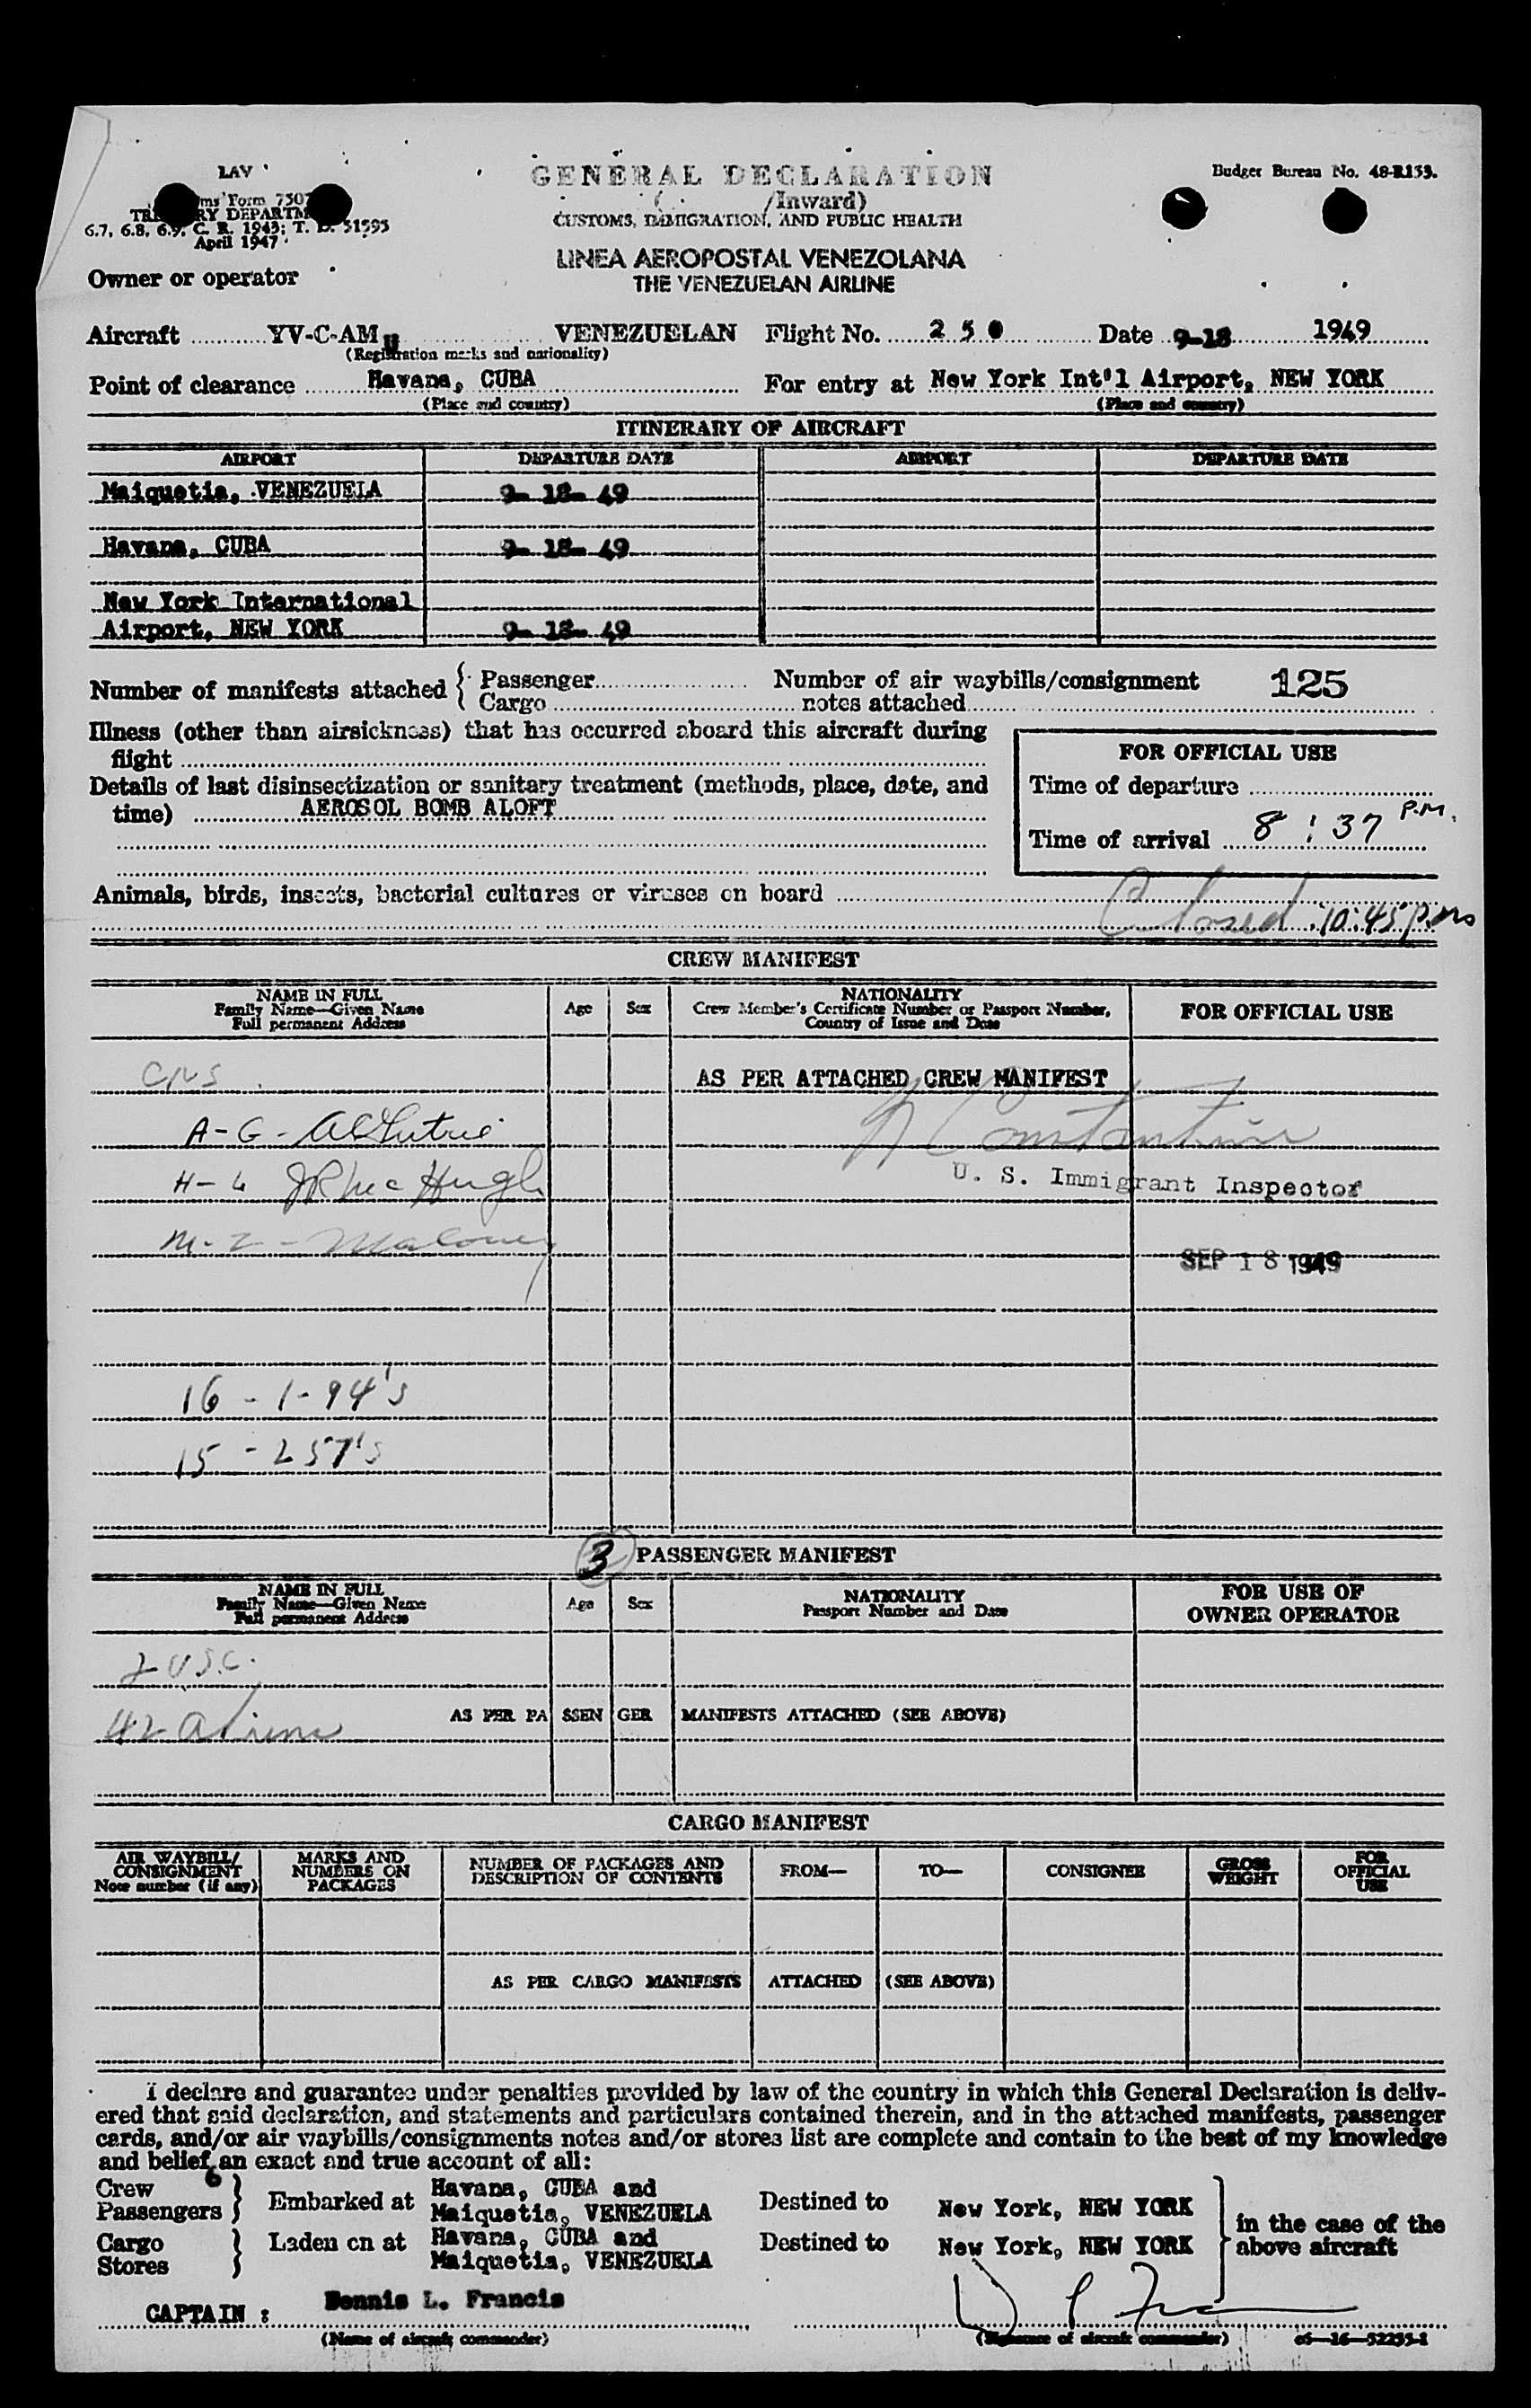 LAV
GENERAL DECLARATION
Budget Bureau No. 48-R153.
ms' Form 750
(/Inward)
TRE RY DEPARTM
CUSTOMS, IMMIGRATION, AND PUBLIC HEALTH
6.7, 6.8, 6.9, C. R. 1943; T. D. 51595
April 1947
LINEA AEROPOSTAL VENEZOLANA
THE VENEZUELAN AIRLINE
Owner or operator
Aircraft YV-C-AMU VENEZUELAN Flight No. 250 Date 9-18 1949
(Registration marks and nationality)
Point of clearance Havana, CUBA For entry at New York Int'l Airport, NEW YORK
(Place and country) (Place and country)
ITINERARY OF AIRCRAFT
AIRPORT DEPARTURE DATE AIRPORT DEPARTURE DATE
Maiquetia, VENEZUELA 9- 18- 49
Havana, CUBA 9- 18- 49
New York International
Airport, NEW YORK 9- 18- 49
Number of manifests attached { Passenger Number of air waybills/consignment 125
Cargo notes attached
Illness (other than airsickness) that has occurred aboard this aircraft during
flight
FOR OFFICIAL USE
Details of last disinsectization or sanitary treatment (methods, place, date, and
time) AEROSOL BOMB ALOFT
Time of departure
Time of arrival 8:37 P.M.
Animals, birds, insects, bacterial cultures or viruses on board
Closed 10:45 p.m
CREW MANIFEST
NAME IN FULL
Family Name—Given Name
Full permanent Address
Age Sex
NATIONALITY
Crew Member's Certificate Number or Passport Number,
Country of Issue and Date
FOR OFFICIAL USE
AS PER ATTACHED CREW MANIFEST
A-G-
N Constantine
H-L JR McHugh
U. S. Immigrant Inspector
M-Z - Maloney
SEP 18 1949
16 - 1-94's
15 - 257's
3 PASSENGER MANIFEST
NAME IN FULL
Family Name—Given Name
Full permanent Address
Age Sex
NATIONALITY
Passport Number and Date
FOR USE OF
OWNER OPERATOR
2 U.S.C.
42 aliens AS PER PASSENGER MANIFESTS ATTACHED (SEE ABOVE)
CARGO MANIFEST
AIR WAYBILL/
CONSIGNMENT
Note number (if any)
MARKS AND
NUMBERS ON
PACKAGES
NUMBER OF PACKAGES AND
DESCRIPTION OF CONTENTS
FROM— TO— CONSIGNEE
GROSS
WEIGHT
FOR
OFFICIAL
USE
AS PER CARGO MANIFESTS ATTACHED (SEE ABOVE)
I declare and guarantee under penalties provided by law of the country in which this General Declaration is deliv-
ered that said declaration, and statements and particulars contained therein, and in the attached manifests, passenger
cards, and/or air waybills/consignments notes and/or stores list are complete and contain to the best of my knowledge
and belief an exact and true account of all:
Crew 6 } Embarked at Havana, CUBA and Destined to New York, NEW YORK
Passengers Maiquetia, VENEZUELA
Cargo } Laden on at Havana, CUBA and Destined to New York, NEW YORK
Stores Maiquetia, VENEZUELA
in the case of the
above aircraft
CAPTAIN : Dennis L. Francis
(Name of aircraft commander) (Signature of aircraft commander) 16—52255-1